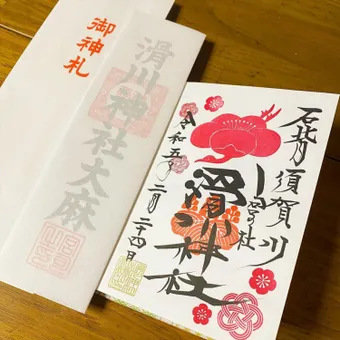 御神札
滑川神社大麻
石背 須賀川
滑川神社
令和五年二月二十四日